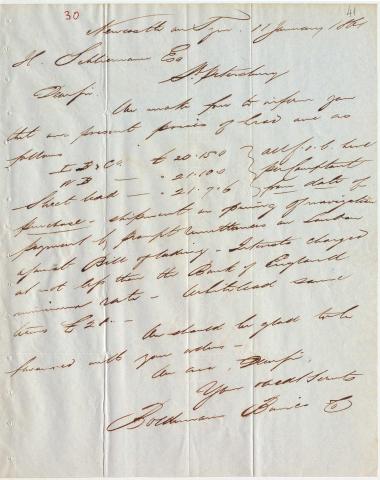 30
41
Newcastle on Tyne. 11 January 1861
H. Schliemann Esq
St. Petersburg
Dear Sir
We make free to inform you
that our present prices of Lead are as
follows
£ 20.15.0 all f.o.b. here
WB — " 21.10.0
Sheet lead — " 21.7.6 from date of
purchase - shipment on opening of navigation
payment by prompt remittances on London
against Bill of Lading - Interest charged
at not less than the Bank of England
minimum rate - White lead same
terms £21.-
We should be glad to be
favoured with your orders -
We are, Dear Sir
Your obedt Servts
Bolckman Borries Co